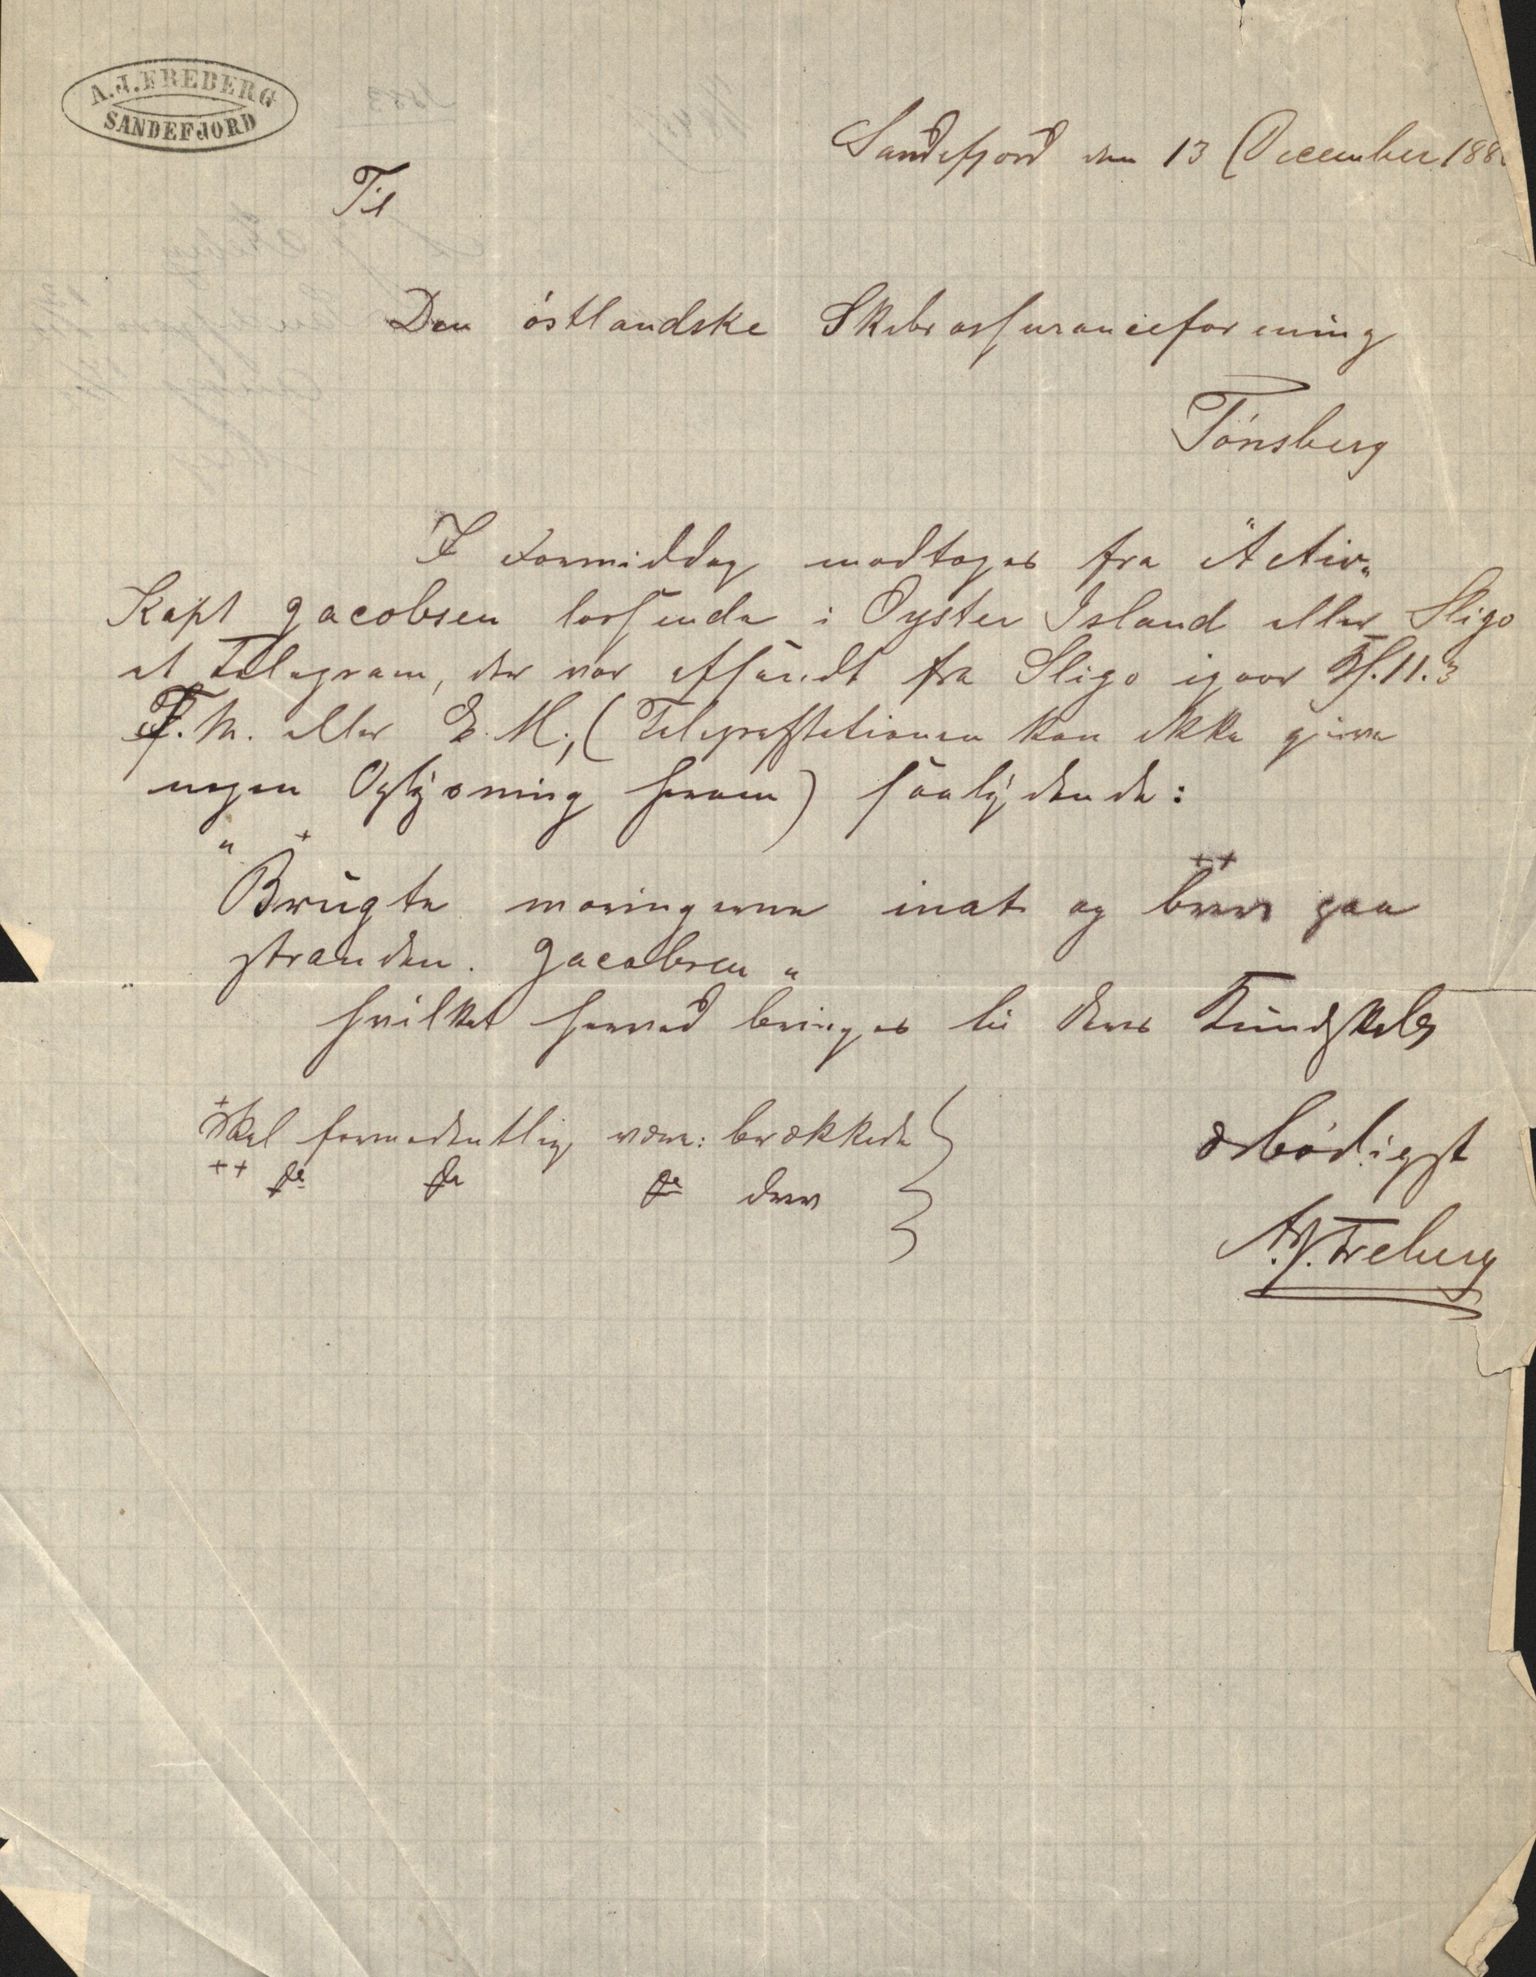 A. J. FREBERG
SANDEFJORD
Sandefjord den 13 December 188
Til
Den östlandske Skibsassuranceforening
Tönsberg
I Formiddag modtoges fra "Activ"
Kapt Jacobsen lossende i Oyster Island eller Sligo
et Telegram, der var afsendt fra Sligo igaar Kl. 11.3
F. M. eller E. M; (Telegrafstationen kan ikke give
nogen Oplysning herom) saalydende:
" +
Brugte moringerne inat og ++ brev paa
stranden. Jacobsen "
hvilket herved bringes til Deres Kundskab
+ skal formodentlig være: brækkede
++ do do do drev
Ærbödigst
A. J. Freberg